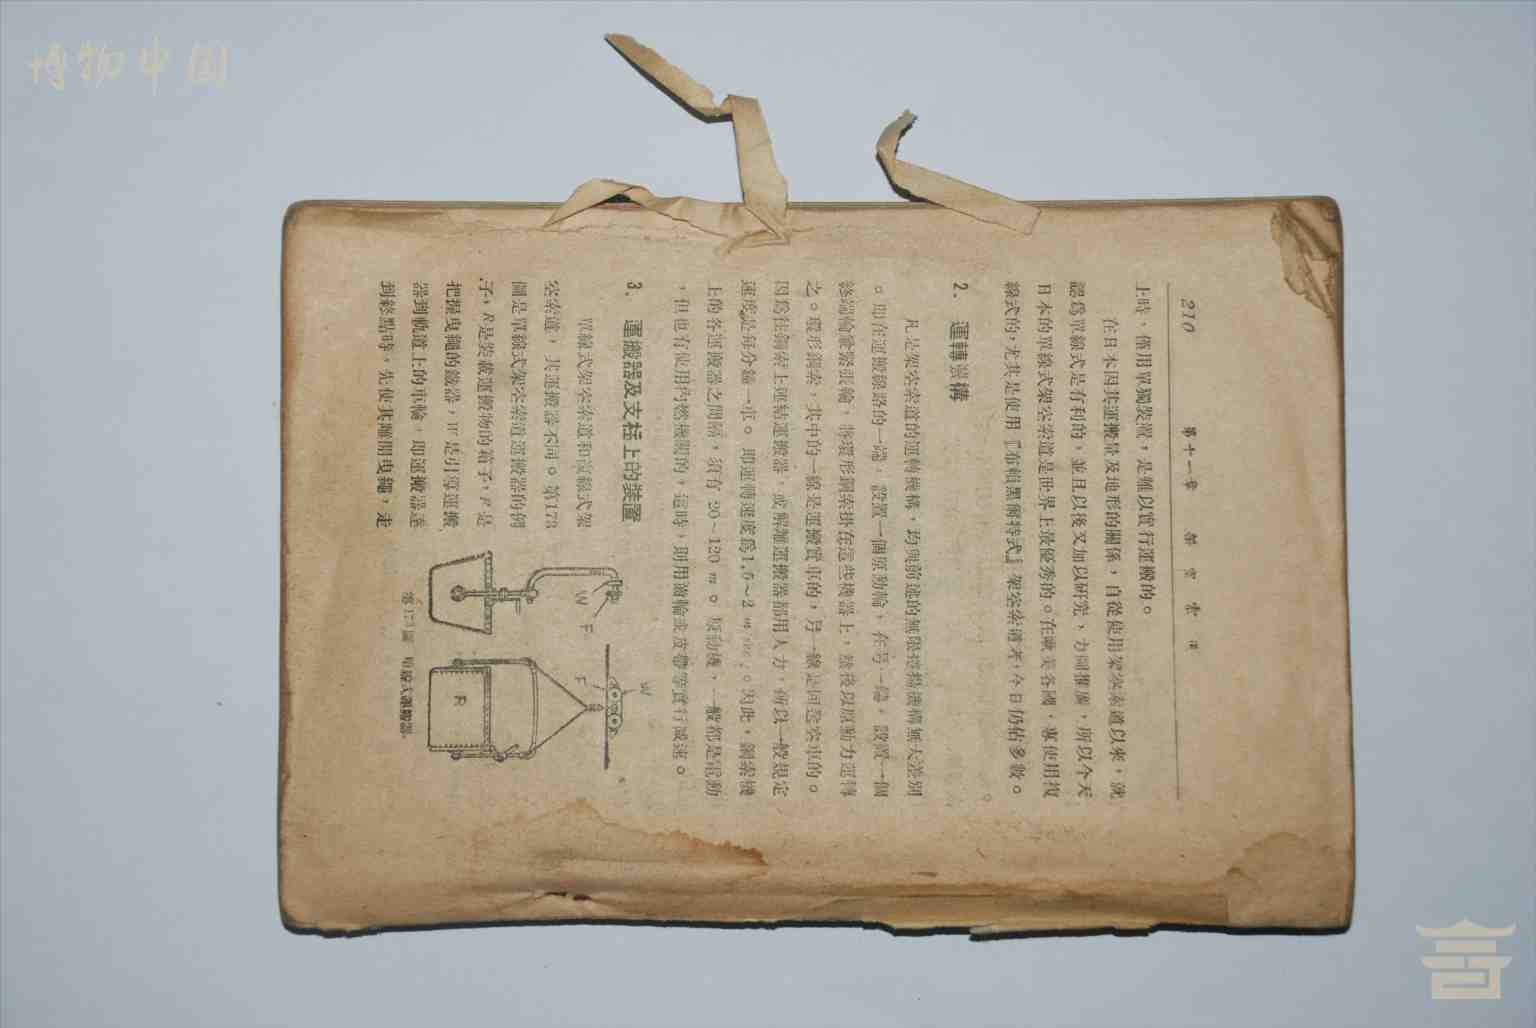 博物中国
210
第十一章 架空索道
上時，僅用單獨裝置，是難以實行運搬的。
在日本因其運搬量及地形的關係，自從使用架空索道以來，就
認爲單線式是有利的，並且以後又加以研究，力圖推廣，所以今天
日本的單線式架空索道是世界上最優秀的。在歐美各國，專使用複
線式的，尤其是使用『布賴黑爾特式』架空索道者，今日仍佔多數。
2. 運轉機構
凡是架空索道的運轉機構，均與前述的無限捲揚機構無大差別
。即在運搬線路的一端，設置一個原動輪，在另一端，設置一個
終端輪兼緊張輪，將環形鋼索掛在這些機器上，然後以原動力運轉
之。環形鋼索，其中的一線是運搬實車的，另一線是回送空車的。
因爲往鋼索上連結運搬器，或解離運搬器都用人力，所以一般規定
運度是每分鐘一車。即運轉速度爲1.5～2 m/sec.。爲此，鋼索機
上的各運搬器之間隔，須有 20～120 m。原動機，一般都是電動
，但也有使用內燃機關的，這時，則用齒輪或皮帶等實行減速。
3. 運搬器及支柱上的裝置
單線式架空索道和複線式架
空索道，其運搬器不同。第173
圖是單線式架空索道運搬器的例
子，R是裝載運搬物的箱子，F是
把握曳繩的鐵器，W是引導運搬
器到軌道上的車輪，即運搬器達
到終點時，先使其離開曳繩，走
W
F
W
F
R
第173圖 單線式運搬器。